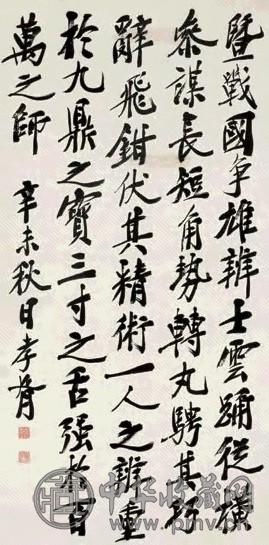 暨戰國争雄辨士雲踴從橫
參謀長短角勢轉丸騁其巧
辭飛鉗伏其精術一人之辨重
於九鼎之寶三寸之舌强於百
萬之師
辛未秋日孝胥
中华收藏网